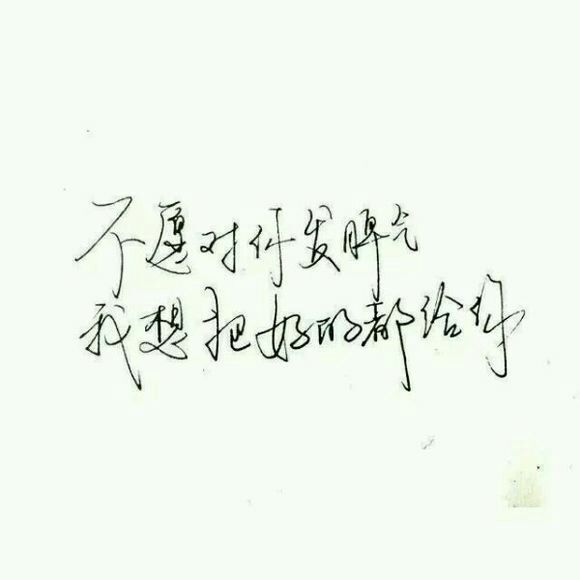 不愿对你发脾气
我想把好的都给你